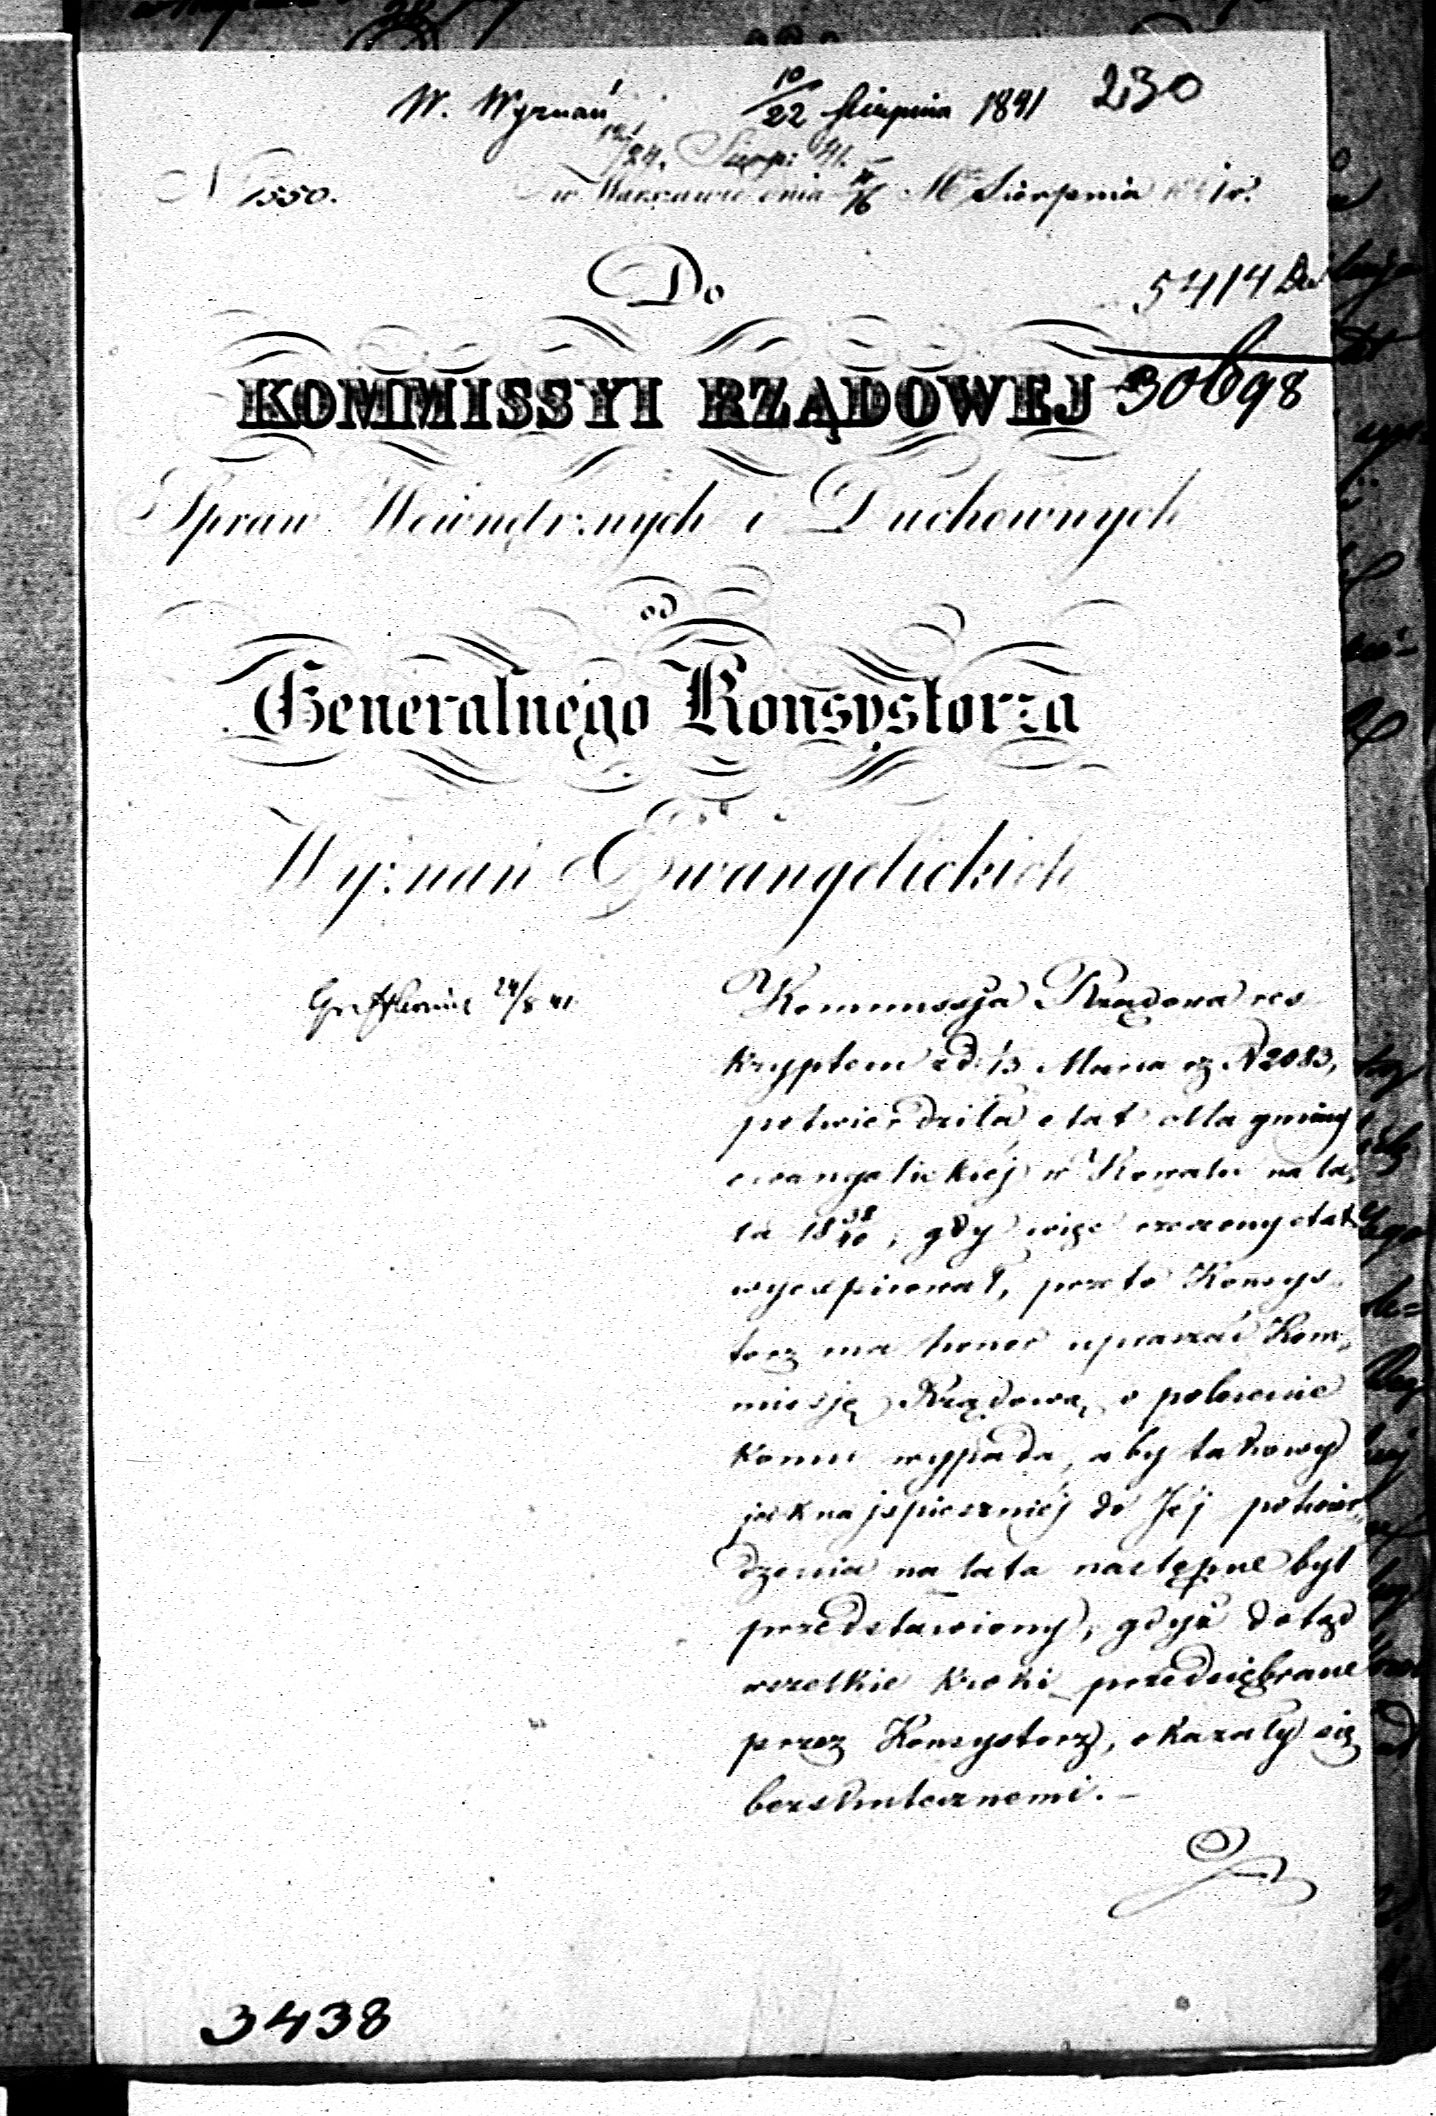 W. Wyznań 10/22 Sierpnia 1841 230
12/24. Sierp: 41.
N 1550. w Warszawie dnia 4/16 Mca Sierpnia 1841 r.
Do
5414
KOMMISSYI RZĄDOWEJ 30698
Spraw Wewnętrznych i Duchownych
od
Generalnego Konsystorza
Wyznań Ewangelickich
24/8 41
Kommissja Rządowa res
kryptem z d: 1/13 Marca rz N 2083,
potwierdziła etat dla gminy
ewangelickiéj w Kowalu na la,
ta 18 38/40, gdy więc rzeczony etat
wyexpirował, przeto Konsys
torz ma honor upraszać Kom,
missję Rządową o polecenie
komu wypada, aby takowy
jak najspieszniéj do Jéj potwier,
dzenia na lata następne był
przedstawiony, gdyż dotąd
wszelkie kroki przedsiębrane
przez Konsystorz, okazały się
bezskutecznemi. –
3438